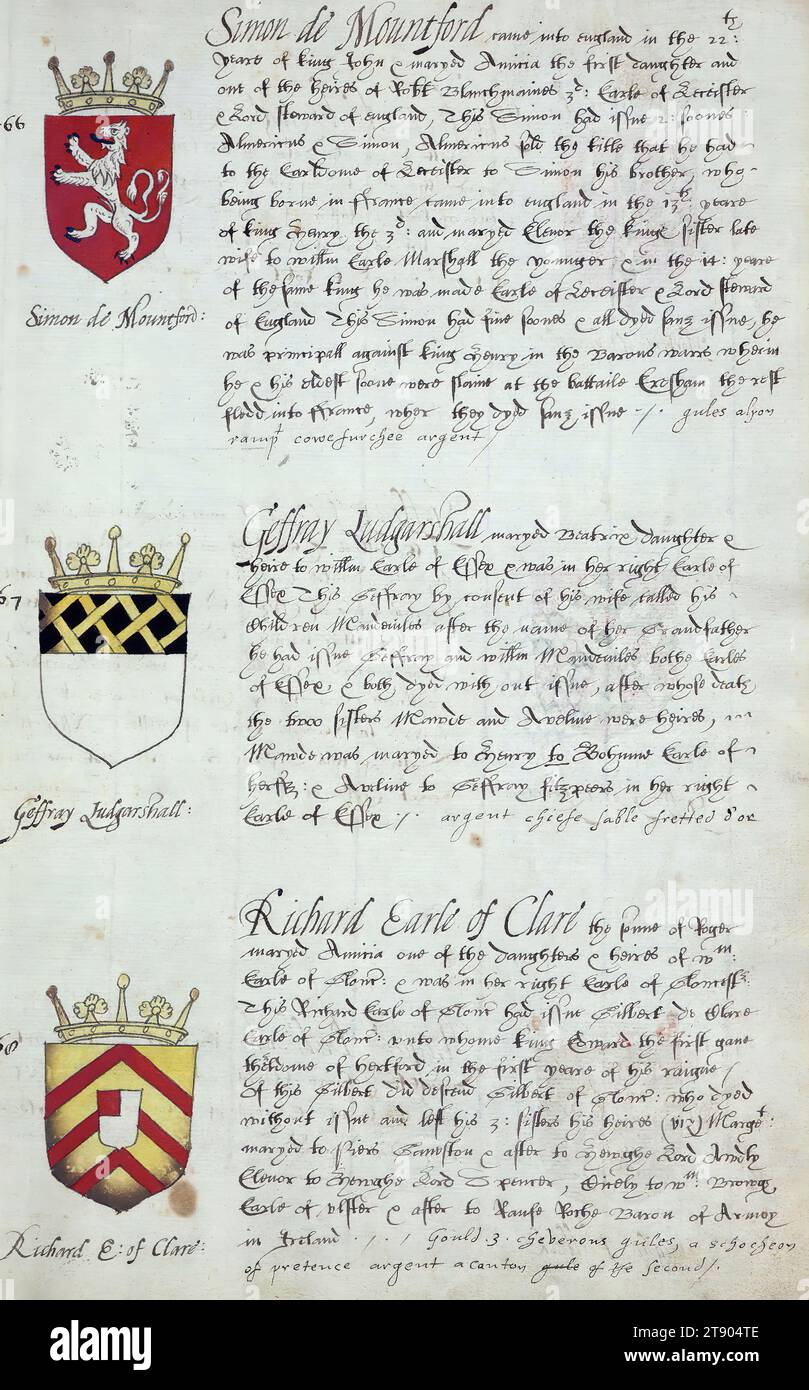 Simon de Mountford came into england in the 22:
yeare of king John & maryed Amicia the first daughter and
one of the heires of Robt Blanchmaines 3d: Earle of Leceister
& Lord steward of england, This Simon had issue 2: soones
Almericus & Simon, Almericus the title that he had
to the Earldome of Leceister to Simon his brother, who
being borne in ffrance came into england in the 13th yeare
of king Henry the 3d: and maryed Elenor the kings sister late
wife to willm Earle Marshall the younger & in the 14: yeare
of the same king he was made Earle of Leceister & Lord steward
of England This Simon had fiue soones & all dyed sanz issue, he
was principall against king Henry in the Barons warrs wherin
he & his eldest soone were slaine at the battaile Evesham the rest
fledd into ffrance, wher they dyed sanz issue ·/· gules a lyon
rampt cowe furchee argent /
66
Simon de Mountford:
Geffray Ludgarshall maryed Beatrix daughter &
heire to willm Earle of Essex & was in her right Earle of
Essex This Geffray by consent of his wife called his
Children Mandeuiles after the name of her Grandfather
he had issue Geffray and willm Mandeuiles bothe Earles
of Essex, & both dyed with out issue, after whose death
the twoo sisters Mawde and Aveline were heires,
Mawde was maryed to Henry to Bohune Earle of
herff: & Aveline to Geffray fitzpeers in her right
Earle of Essex ·/· argent chiefe sable fretted d'or
67
Geffray Ludgarshall:
Richard Earle of Clare the sonne of Roger
maryed Amicia one of the daughters & heires of wm:
Earle of Glouc: & was in her right Earle of Gloucestr:
This Richard Earle of Glouc had issue Gilbert de Clare
Earle of Glouc: vnto whome king Edward the first gaue
of hertford in the first yeare of his raigne /
Of this Gilbert did descend Gilbert of Glouc: who dyed
without issue and left his 3: sisters his heires (viz) Marget:
maryed to Piers Gauiston & after to Hewghe Lord Awdly
Elenor to Hewghe Lord Spencer, to wm:
Earle of vlster & after to Raufe Roche Baron of Armoy
in Ireland ·/·/ Gould 3 cheverons gules, a schocheon
of pretence argent a canton gule of the second /·
68
Richard E: of Clare:
alamy
alamy
Image ID: 2T904TE
www.alamy.com